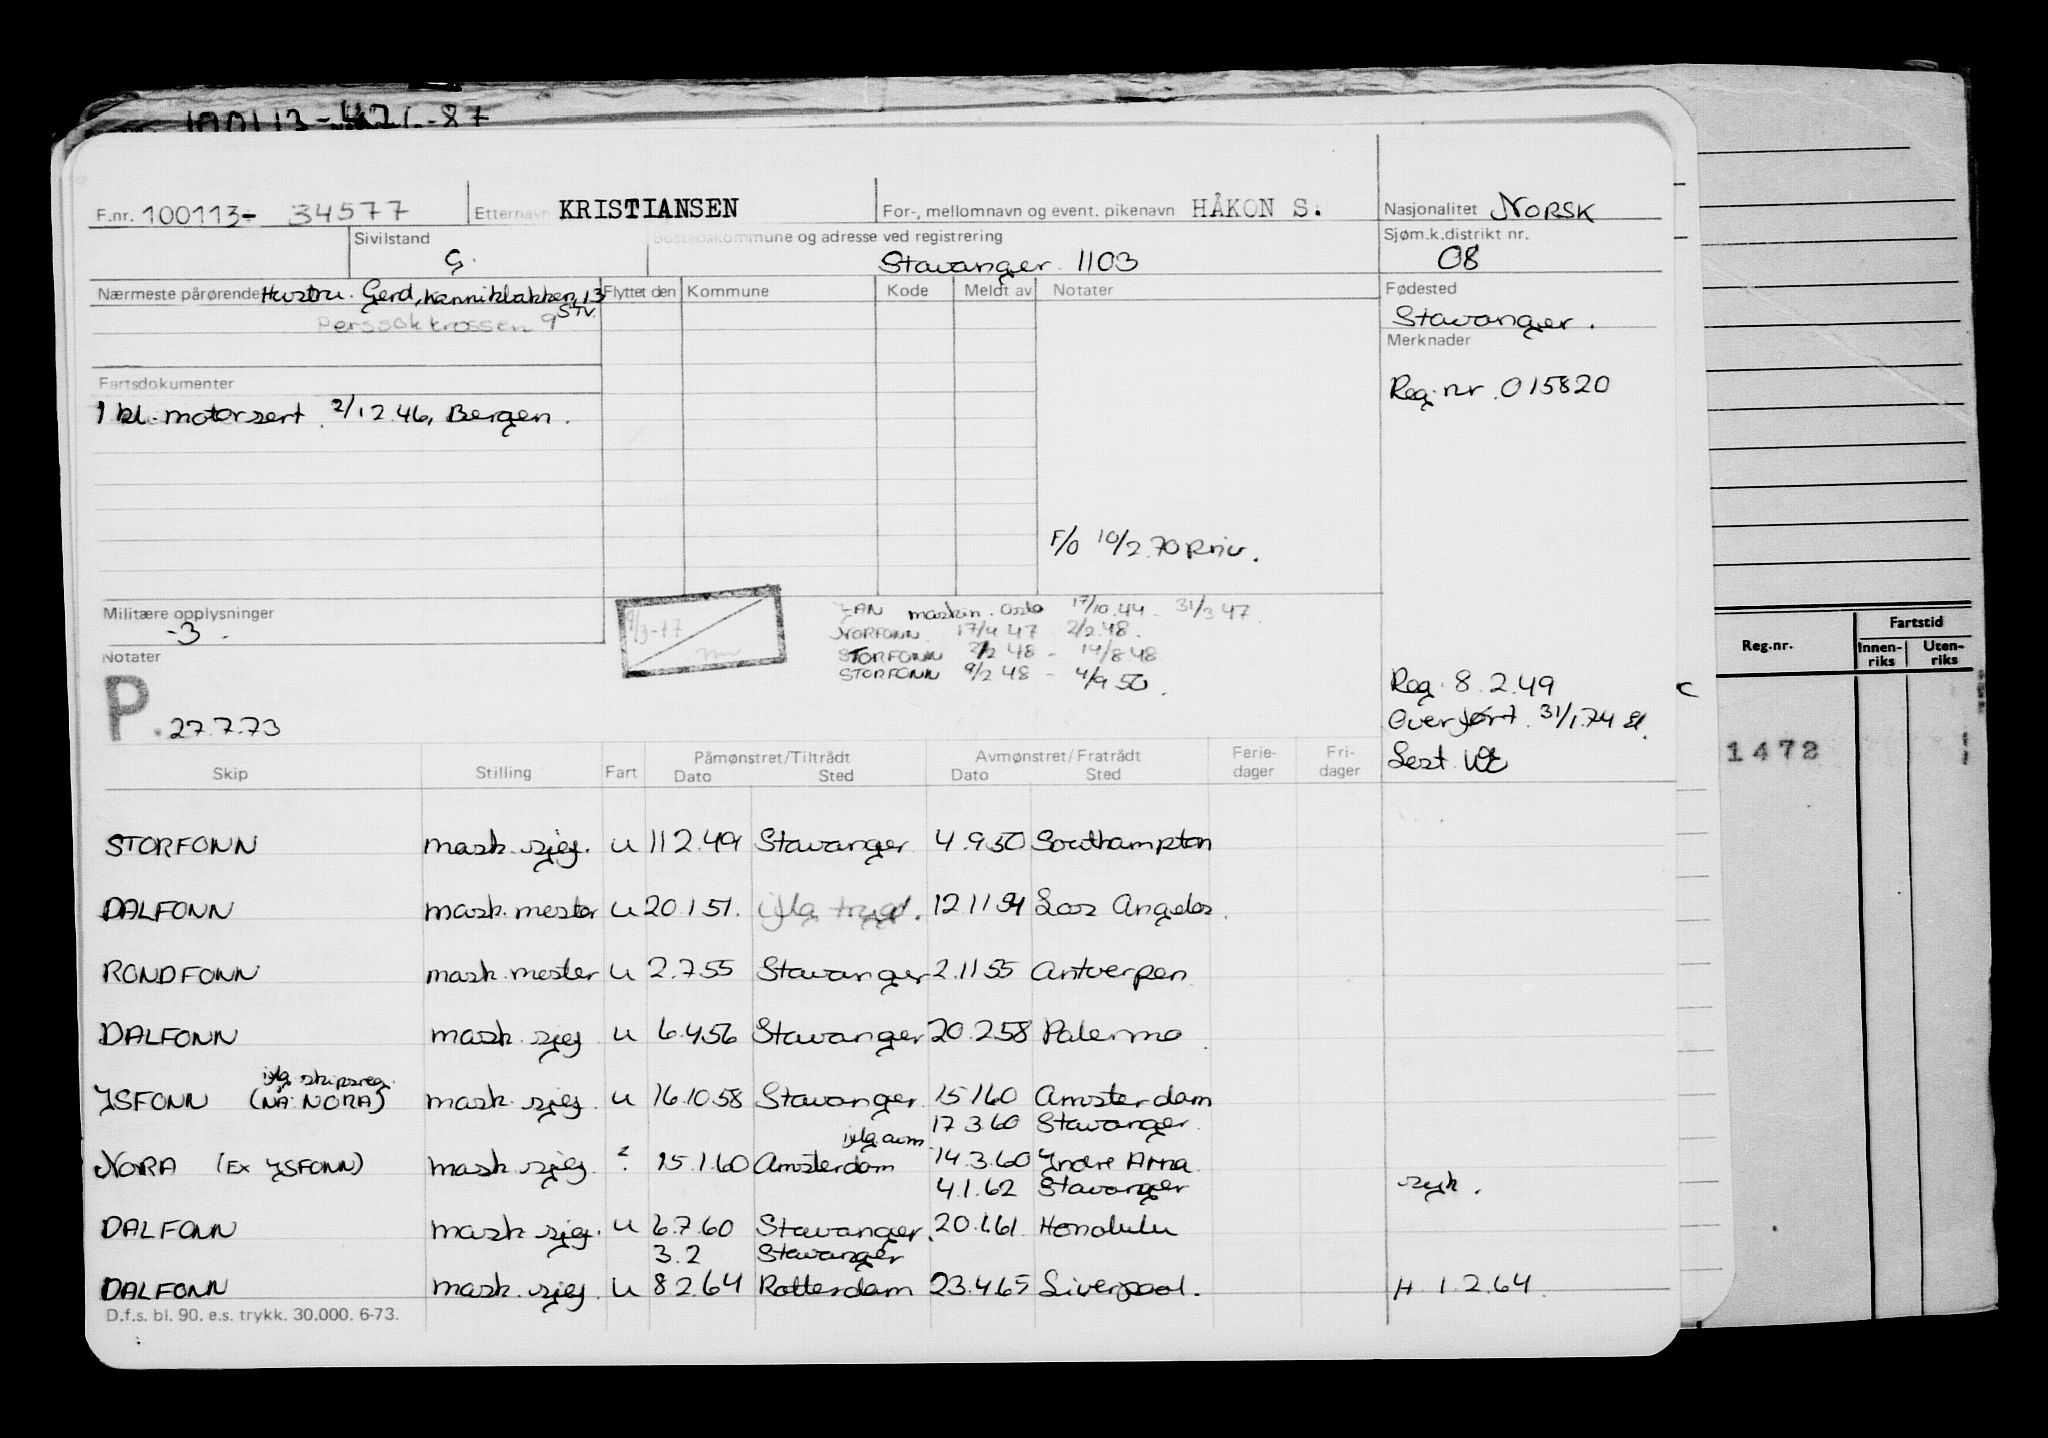 F.nr. 100113- 34577 Etternavn KRISTIANSEN For-, mellomnavn og event. pikenavn HÅKON S. Nasjonalitet NORSK
Sivilstand G. Bostedskommune og adresse ved registrering Stavanger 1103 Sjøm.k.distrikt nr. 08
Nærmeste pårørende Hustru. Gerd, 13 Stv. Flyttet den Kommune Kode Meldt av Notater Fødested
9 Stavanger.
Merknader
Fartsdokumenter Reg.nr. 015820
1 kl. motorsert. 2/12.46, Bergen.
F/O 10/2.70 Priv.
Militære opplysninger maskin. Oslo 17/10.44 - 31/3 47
-3. NORFONN 17/4 47 2/2 48.
Notater STORFONN 2/2 48 - 14/8 48
STORFONN 9/2 48 - 4/9 50.
Reg. 8.2.49
P. 27.7.73 Overført 31/1.74
Skip Stilling Fart Påmønstret/Tiltrådt Dato Sted Avmønstret/Fratrådt Dato Sted Ferie-dager Fri-dager Lest
STORFONN mask.sjef. U 11 2.49 Stavanger 4.9.50 Southampton
DALFONN mask.mester U 20.1 51. iflg. trygd. 12.11 54 Los Angeles.
RONDFONN mask.mester U 2.7.55 Stavanger 2.11 55 Antwerpen
DALFONN mask.sjef U 6.4.56 Stavanger 20.2.58 Palermo
iflg. skipsreg.
YSFONN (NÅ: NORA) mask.sjef U 16.10.58 Stavanger 15.1.60 Amsterdam
17.3.60 Stavanger
iflg. avm.
NORA (EX YSFONN) mask.sjef ? 15.1.60 Amsterdam 14.3.60 Indre Arna
4.1.62 Stavanger syk.
DALFONN mask.sjef. U 6.7.60 Stavanger. 20.1.61 Honolulu
3.2 Stavanger
DALFONN mask.sjef U 8.2.64 Rotterdam 23.4.65 Liverpool. H 1.2.64.
D.f.s. bl. 90. e.s. trykk. 30.000. 6-73.
Reg.nr. Fartstid
Innen-riks Uten-riks
1472